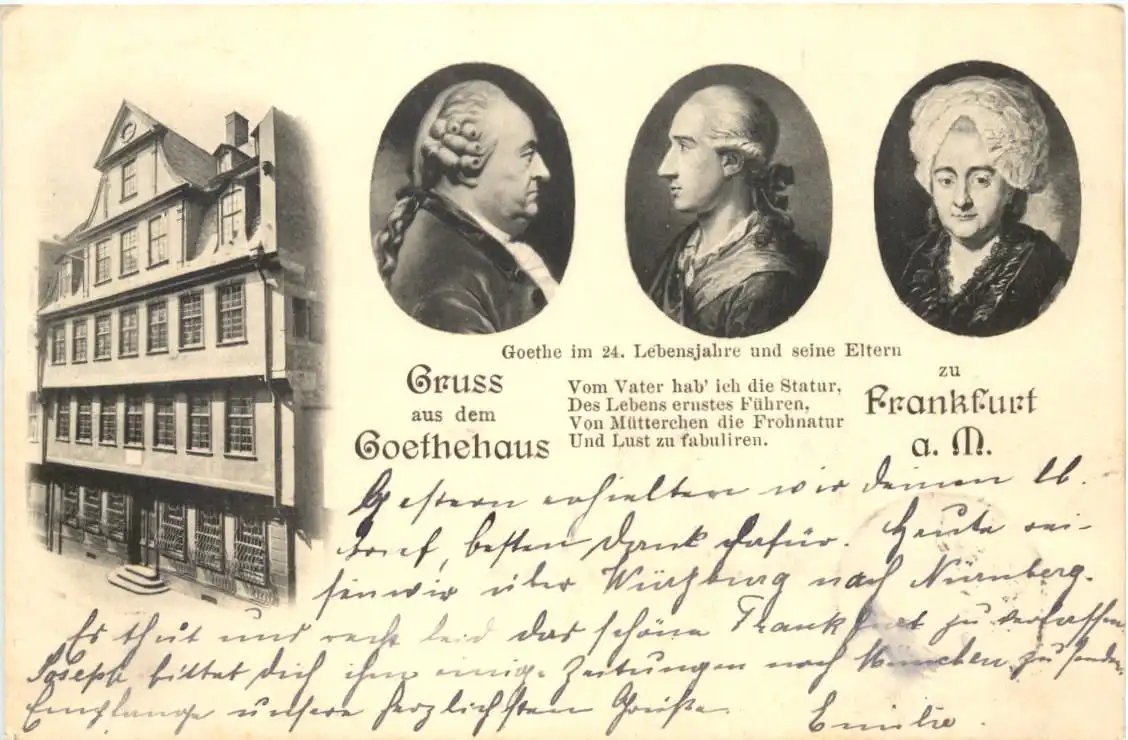 Goethe im 24. Lebensjahre und seine Eltern
Gruss
aus dem
Goethehaus
Vom Vater hab' ich die Statur,
Des Lebens ernstes Führen,
Von Mütterchen die Frohnatur
Und Lust zu fabuliren.
zu
Frankfurt
a. M.
Gestern erhielten wir deinen lb.
Brief, besten Dank dafür. Heute rei-
sen wir über Würzburg nach Nürnberg.
Es thut uns recht leid das schöne Frankfurt zu verlassen
Joseph bittet dich ihm einige Zeitungen nach München zu senden
Empfange unsere herzlichsten Grüße
Emilie.